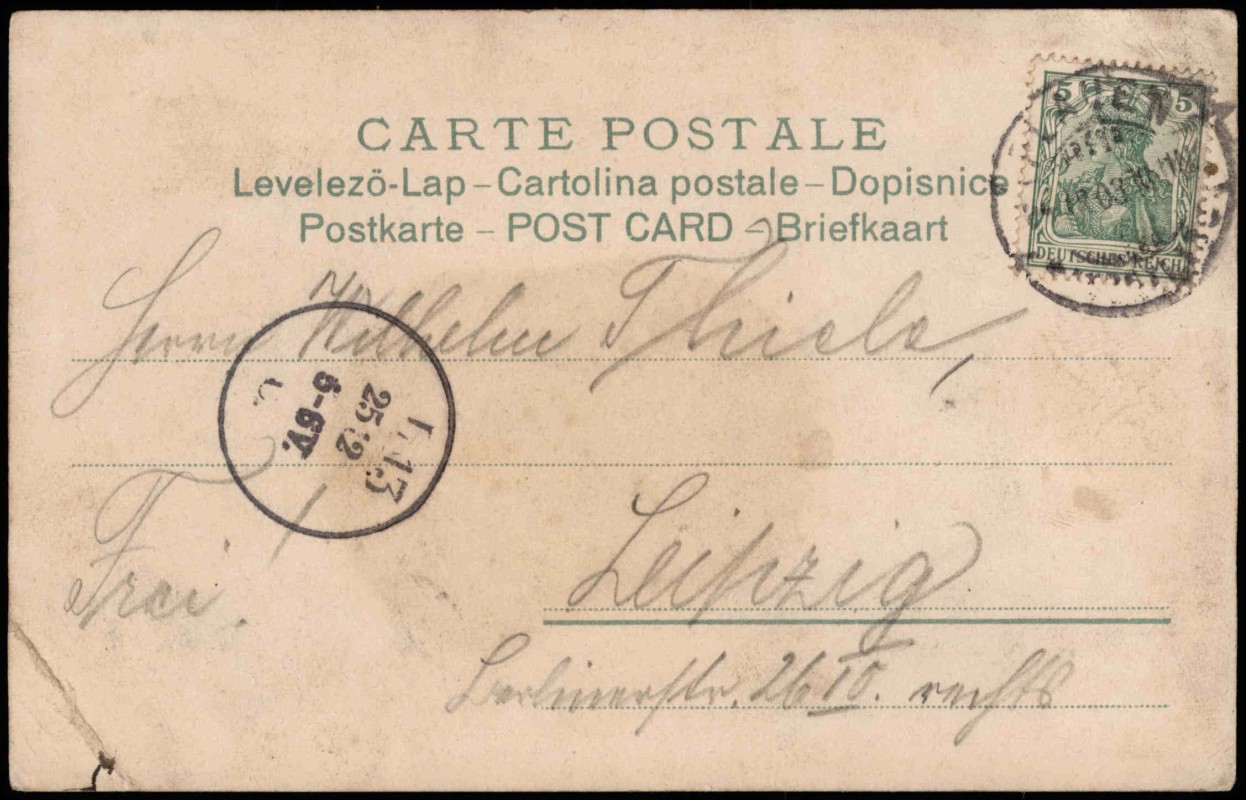 CARTE POSTALE
Levelezö-Lap – Cartolina postale – Dopisnice
Postkarte – POST CARD – Briefkaart
5 5
DEUTSCHES REICH
Herrn Wilhelm Thiele,
L. 13
25 12
5-6V.
Frei.
Leipzig
Berlinerstr. 26 IV. rechts